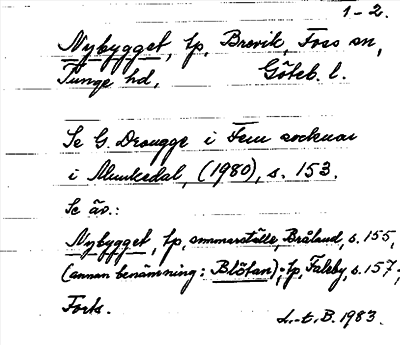 1-2.
Nybygget, lp, Brevik, Foss sn,
Tunge hd, Göteb. l.
Se G. Drougge i Fem socknar
i Munkedal, (1980), s. 153.
Se äv.:
Nybygget, lp, sommarställe, Bråland, s. 155,
(annan benämning: Blötan); lp, Faleby, s. 157;
Forts.
L.-t. B. 1983.